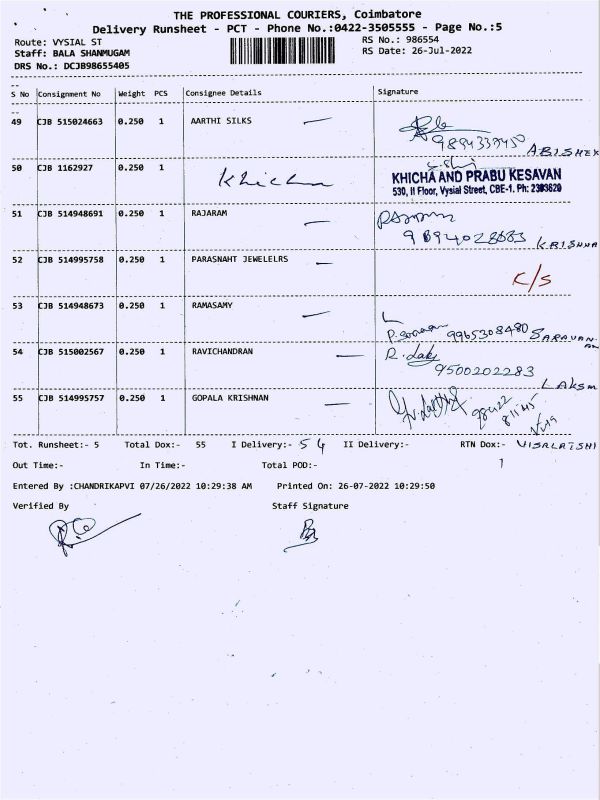 THE PROFESSIONAL COURIERS, Coimbatore
Delivery Runsheet - PCT - Phone No.:0422-3505555 - Page No.:5
Route: VYSIAL ST RS No.: 986554
Staff: BALA SHANMUGAM RS Date: 26-Jul-2022
DRS No.: DCJB98655405
S No Consignment No Weight PCS Consignee Details Signature
49 CJB 515024663 0.250 1 AARTHI SILKS
ABISHEK
50 CJB 1162927 0.250 1 Khicha
KHICHA AND PRABU KESAVAN
530, II Floor, Vysial Street, CBE-1. Ph: 2303620
51 CJB 514948691 0.250 1 RAJARAM
KRISHNA
52 CJB 514995758 0.250 1 PARASNAHT JEWELELRS
C/S
53 CJB 514948673 0.250 1 RAMASAMY
9965308480 SARAVANAN
54 CJB 515002567 0.250 1 RAVICHANDRAN
9500202283
LAKSM
55 CJB 514995757 0.250 1 GOPALA KRISHNAN
Tot. Runsheet:- 5 Total Dox:- 55 I Delivery:- 54 II Delivery:- RTN Dox:- 1
VISALATSHI
Out Time:- In Time:- Total POD:-
Entered By :CHANDRIKAPVI 07/26/2022 10:29:38 AM Printed On: 26-07-2022 10:29:50
Verified By Staff Signature